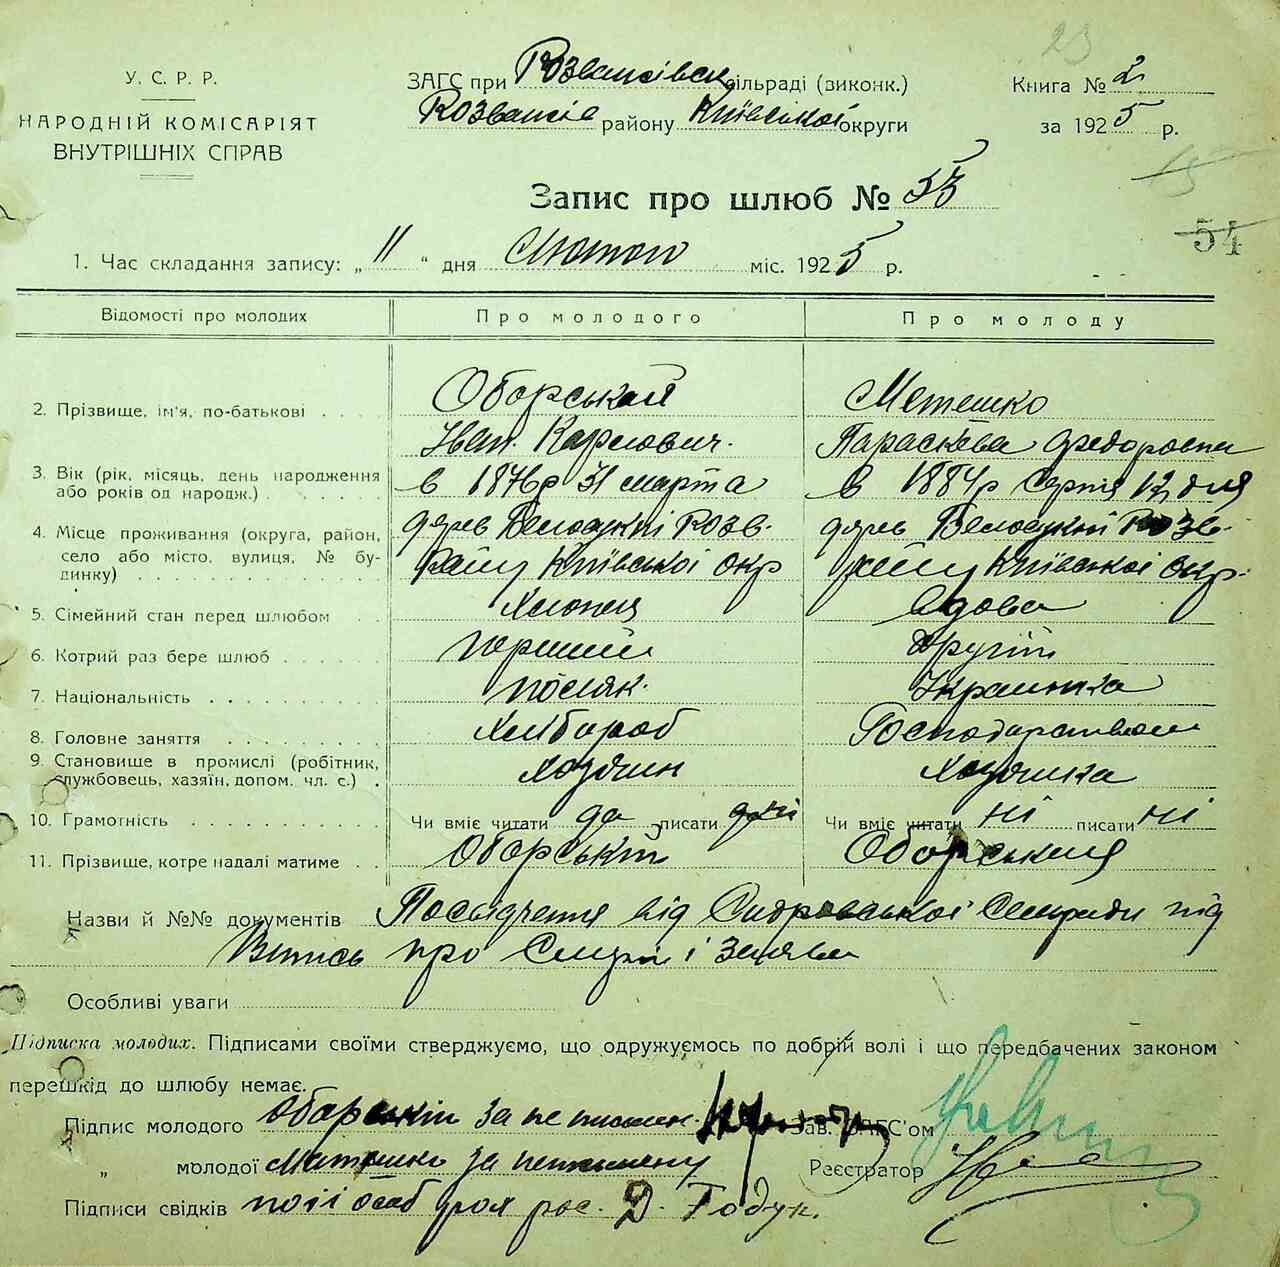 23
У. С. Р. Р.
НАРОДНІЙ КОМІСАРІЯТ
ВНУТРІШНІХ СПРАВ
ЗАГС при Розважівськ сільраді (виконк.)
Розважів району Київської округи
Книга № 2
за 1925 р.
15
Запис про шлюб № 53
54
1. Час складання запису: „11“ дня Лютого міс. 1925 р.
Відомості про молодих Про молодого Про молоду
2. Прізвище, ім'я, по-батькові Оборський Метешко
Іван Карлович. Параскева Федоровна
3. Вік (рік, місяць, день народження або років од народж.) в 1876 р 31 марта в 1884 р Серпня 12 дня
4. Місце проживання (округа, район, село або місто, вулиця, № будинку) дерев Розв. дерев Розв.
району Київської окр району Київської окр.
5. Сімейний стан перед шлюбом Хлопец Вдова
6. Котрий раз бере шлюб перший другий
7. Національність поляк. Украинка
8. Головне заняття Хлібороб Господарством
9. Становище в промислі (робітник, службовець, хазяїн, допом. чл. с.) Хозяин Хозяика
10. Грамотність Чи вміє читати да писати ні Чи вміє читати ні писати ні
11. Прізвище, котре надалі матиме Оборський Оборський
Назви й №№ документів Посвідчення від Сільради під
про і заява
Особливі уваги
Підписка молодих. Підписами своїми стверджуємо, що одружуємось по добрій волі і що передбачених законом
перешкід до шлюбу немає.
Підпис молодого Оборський за не письмен. Зав. ЗАГС'ом
„ молодої Матешко за неписьмену Реєстратор
Підписи свідків по її особ рос. Д. Годук.